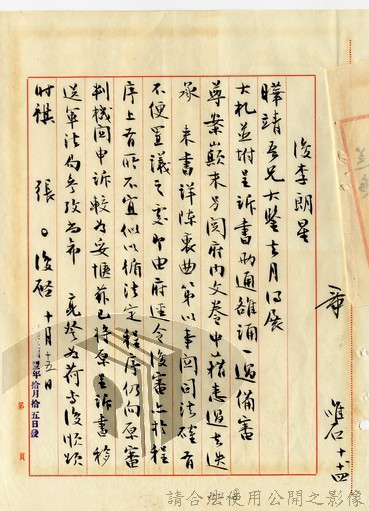 復李朗星
曄靖吾兄大鑒去月得展
大札並附呈訴書兩通雒誦一過備審
尊案巔末另閱府內文卷中藉悉過去迭
承 來書詳陳衷曲第以事關司法確有
不便置議之處即由府逕令復審亦於程
序上有所不宜似以循法定程序仍向原審
判機關申訴較為妥愜茲已將原呈訴書移
送軍法局參考為希 亮詧為荷專復順頌
時祺 張 復啟 十月十五日
年拾月拾五日發
第 頁
十、十四
請合法使用公開之影像